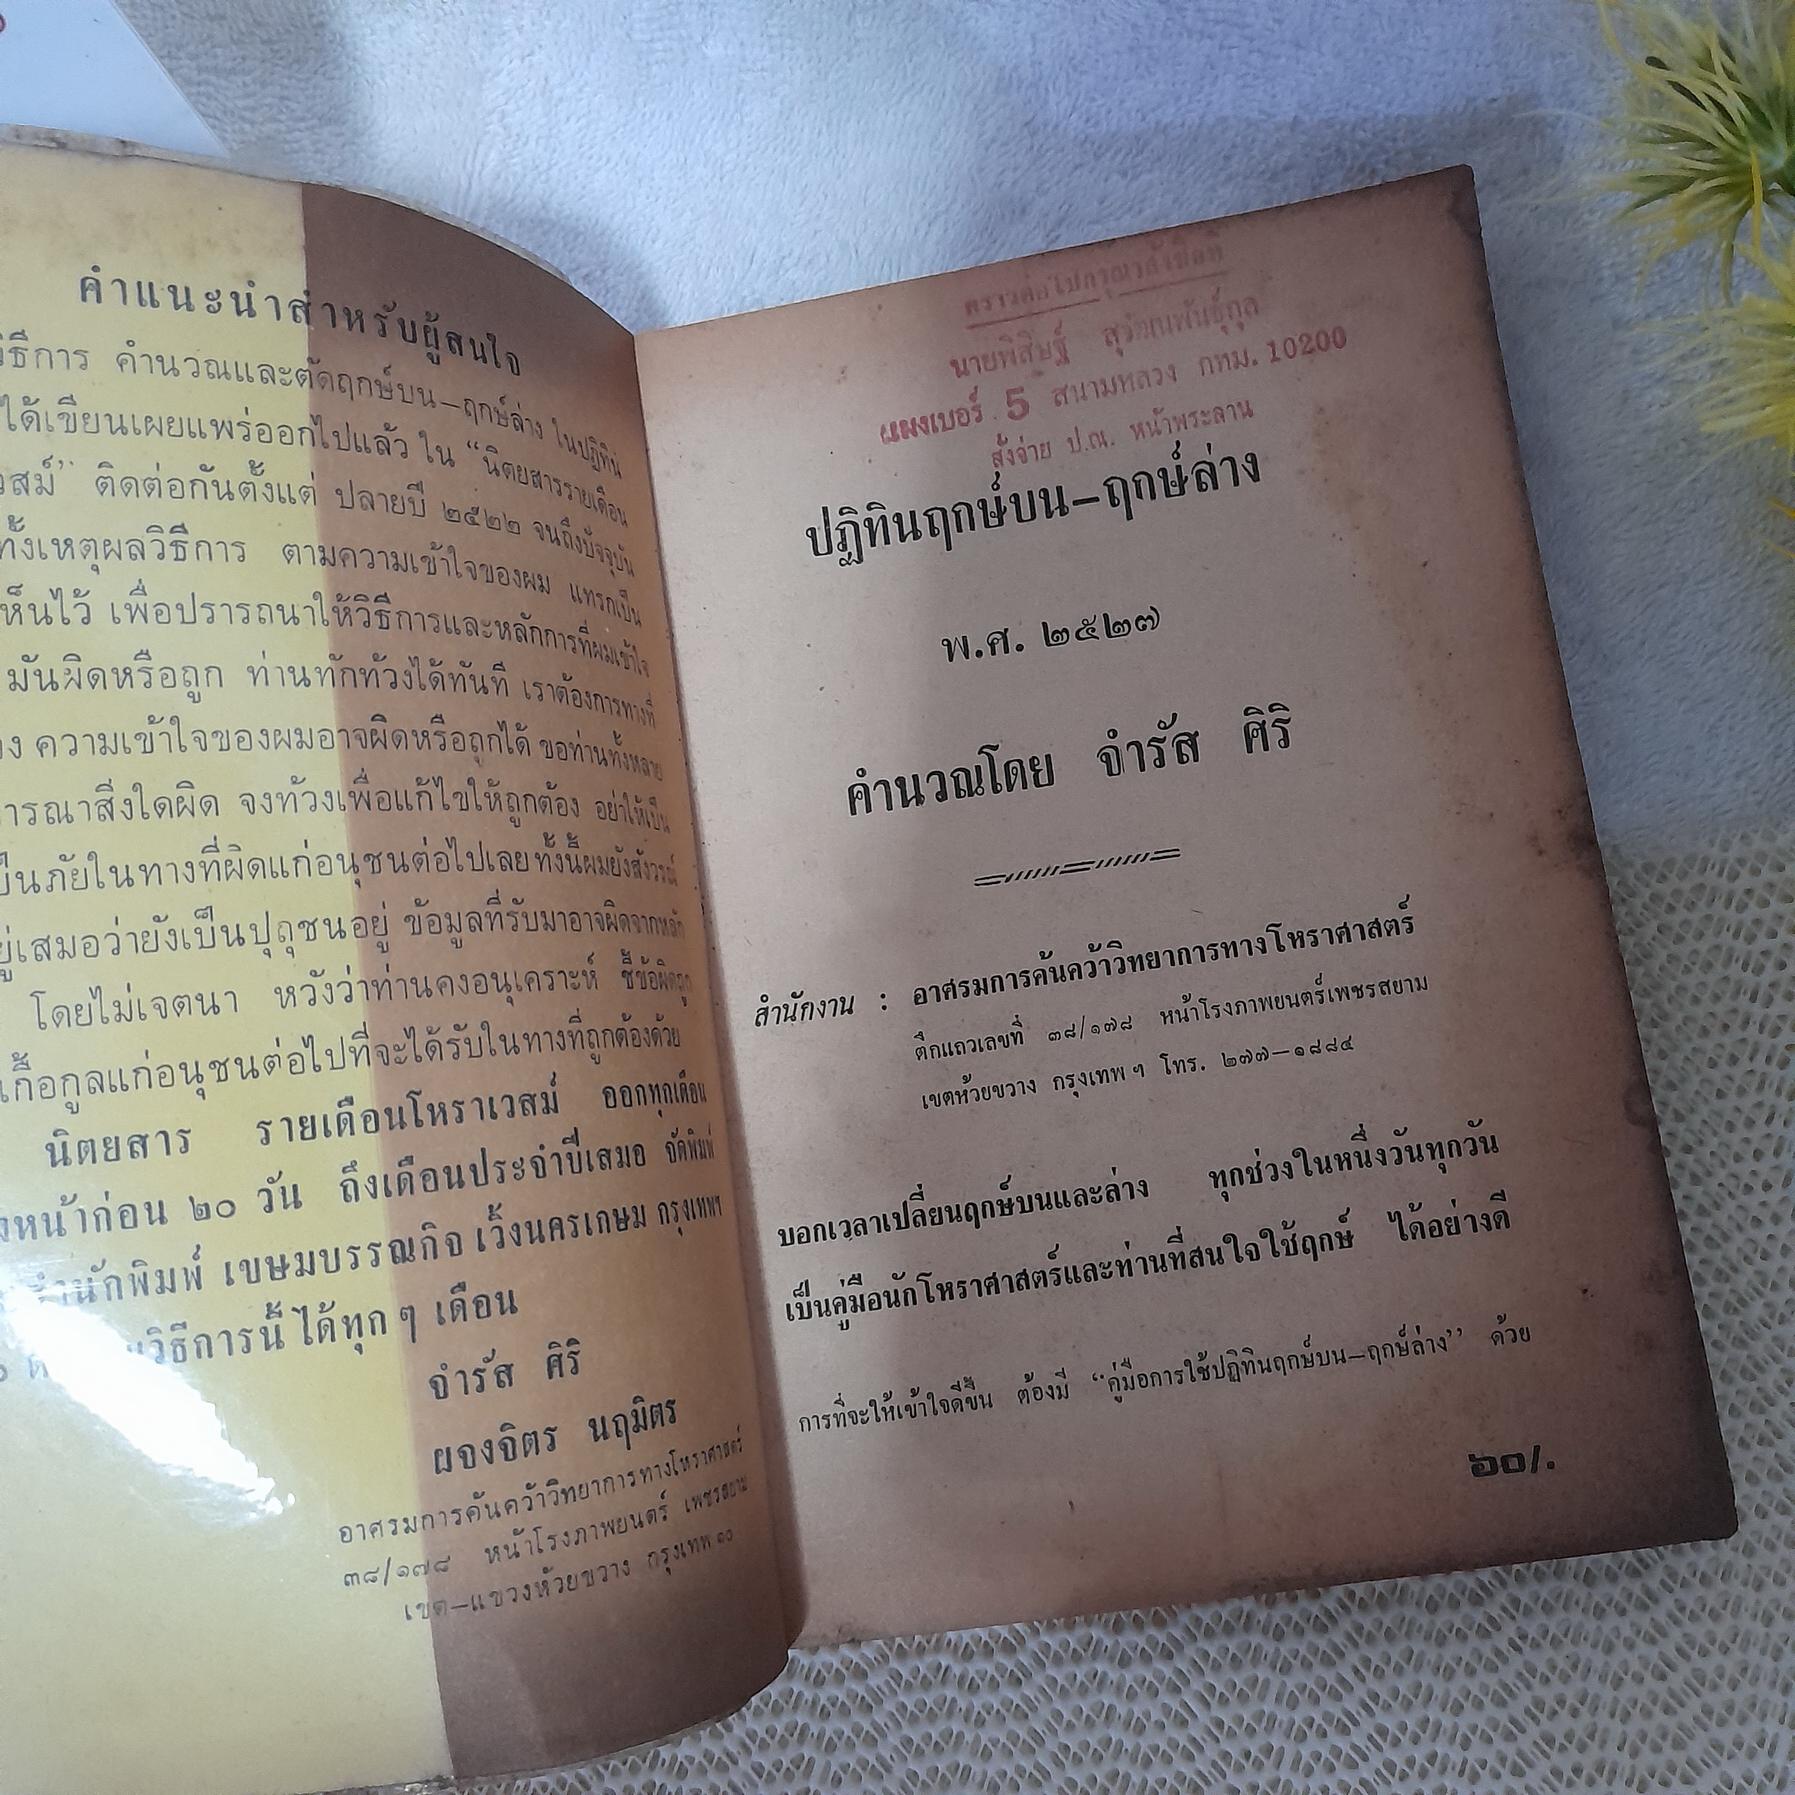 คำแนะนำสำหรับผู้สนใจ
วิธีการ คำนวณและตัดฤกษ์บน–ฤกษ์ล่าง ในปฏิทิน
ได้เขียนเผยแพร่ออกไปแล้ว ใน “นิตยสารรายเดือน
ติดต่อกันตั้งแต่ ปลายปี ๒๕๒๒ จนถึงปัจจุบัน
ทั้งเหตุผลวิธีการ ตามความเข้าใจของผม แทรกเป็น
เห็นไว้ เพื่อปรารถนาให้วิธีการและหลักการที่ผมเข้าใจ
มันผิดหรือถูก ท่านทักท้วงได้ทันที เราต้องการทางที่
ความเข้าใจของผมอาจผิดหรือถูกได้ ขอท่านทั้งหลาย
สิ่งใดผิด จงท้วงเพื่อแก้ไขให้ถูกต้อง อย่าให้เป็น
เป็นภัยในทางที่ผิดแก่อนุชนต่อไปเลย ทั้งนี้ผมยังสังวรณ์
อยู่เสมอว่ายังเป็นปุถุชนอยู่ ข้อมูลที่รับมาอาจผิดจากหลัก
โดยไม่เจตนา หวังว่าท่านคงอนุเคราะห์ ชี้ข้อผิดถูก
เกื้อกูลแก่อนุชนต่อไปที่จะได้รับในทางที่ถูกต้องด้วย
นิตยสาร รายเดือนโหราเวสม์ ออกทุกเดือน
หน้าก่อน ๒๐ วัน ถึงเดือนประจำปีเสมอ จัดพิมพ์
สำนักพิมพ์ เขษมบรรณกิจ เวิ้งนครเกษม กรุงเทพฯ
วิธีการนี้ ได้ทุก ๆ เดือน
จำรัส ศิริ
ผจงจิตร นฤมิตร
อาศรมการค้นคว้าวิทยาการทางโหราศาสตร์
๓๘/๑๗๘ หน้าโรงภาพยนตร์ เพชรสยาม
เขต–แขวงห้วยขวาง กรุงเทพ ๑๐
คราวต่อไปกรุณาสั่งซื้อที่
นายพิสิษฐ์ สุวัฒนพันธุ์กุล
แผงเบอร์ 5 สนามหลวง กทม. 10200
สั่งจ่าย ป.ณ. หน้าพระลาน
ปฏิทินฤกษ์บน–ฤกษ์ล่าง
พ.ศ. ๒๕๒๗
คำนวณโดย จำรัส ศิริ
สำนักงาน : อาศรมการค้นคว้าวิทยาการทางโหราศาสตร์
ตึกแถวเลขที่ ๓๘/๑๗๘ หน้าโรงภาพยนตร์เพชรสยาม
เขตห้วยขวาง กรุงเทพ ฯ โทร. ๒๗๗–๑๘๘๔
บอกเวลาเปลี่ยนฤกษ์บนและล่าง ทุกช่วงในหนึ่งวันทุกวัน
เป็นคู่มือนักโหราศาสตร์และท่านที่สนใจใช้ฤกษ์ ได้อย่างดี
การที่จะให้เข้าใจดีขึ้น ต้องมี “คู่มือการใช้ปฏิทินฤกษ์บน–ฤกษ์ล่าง” ด้วย
๖๐/.